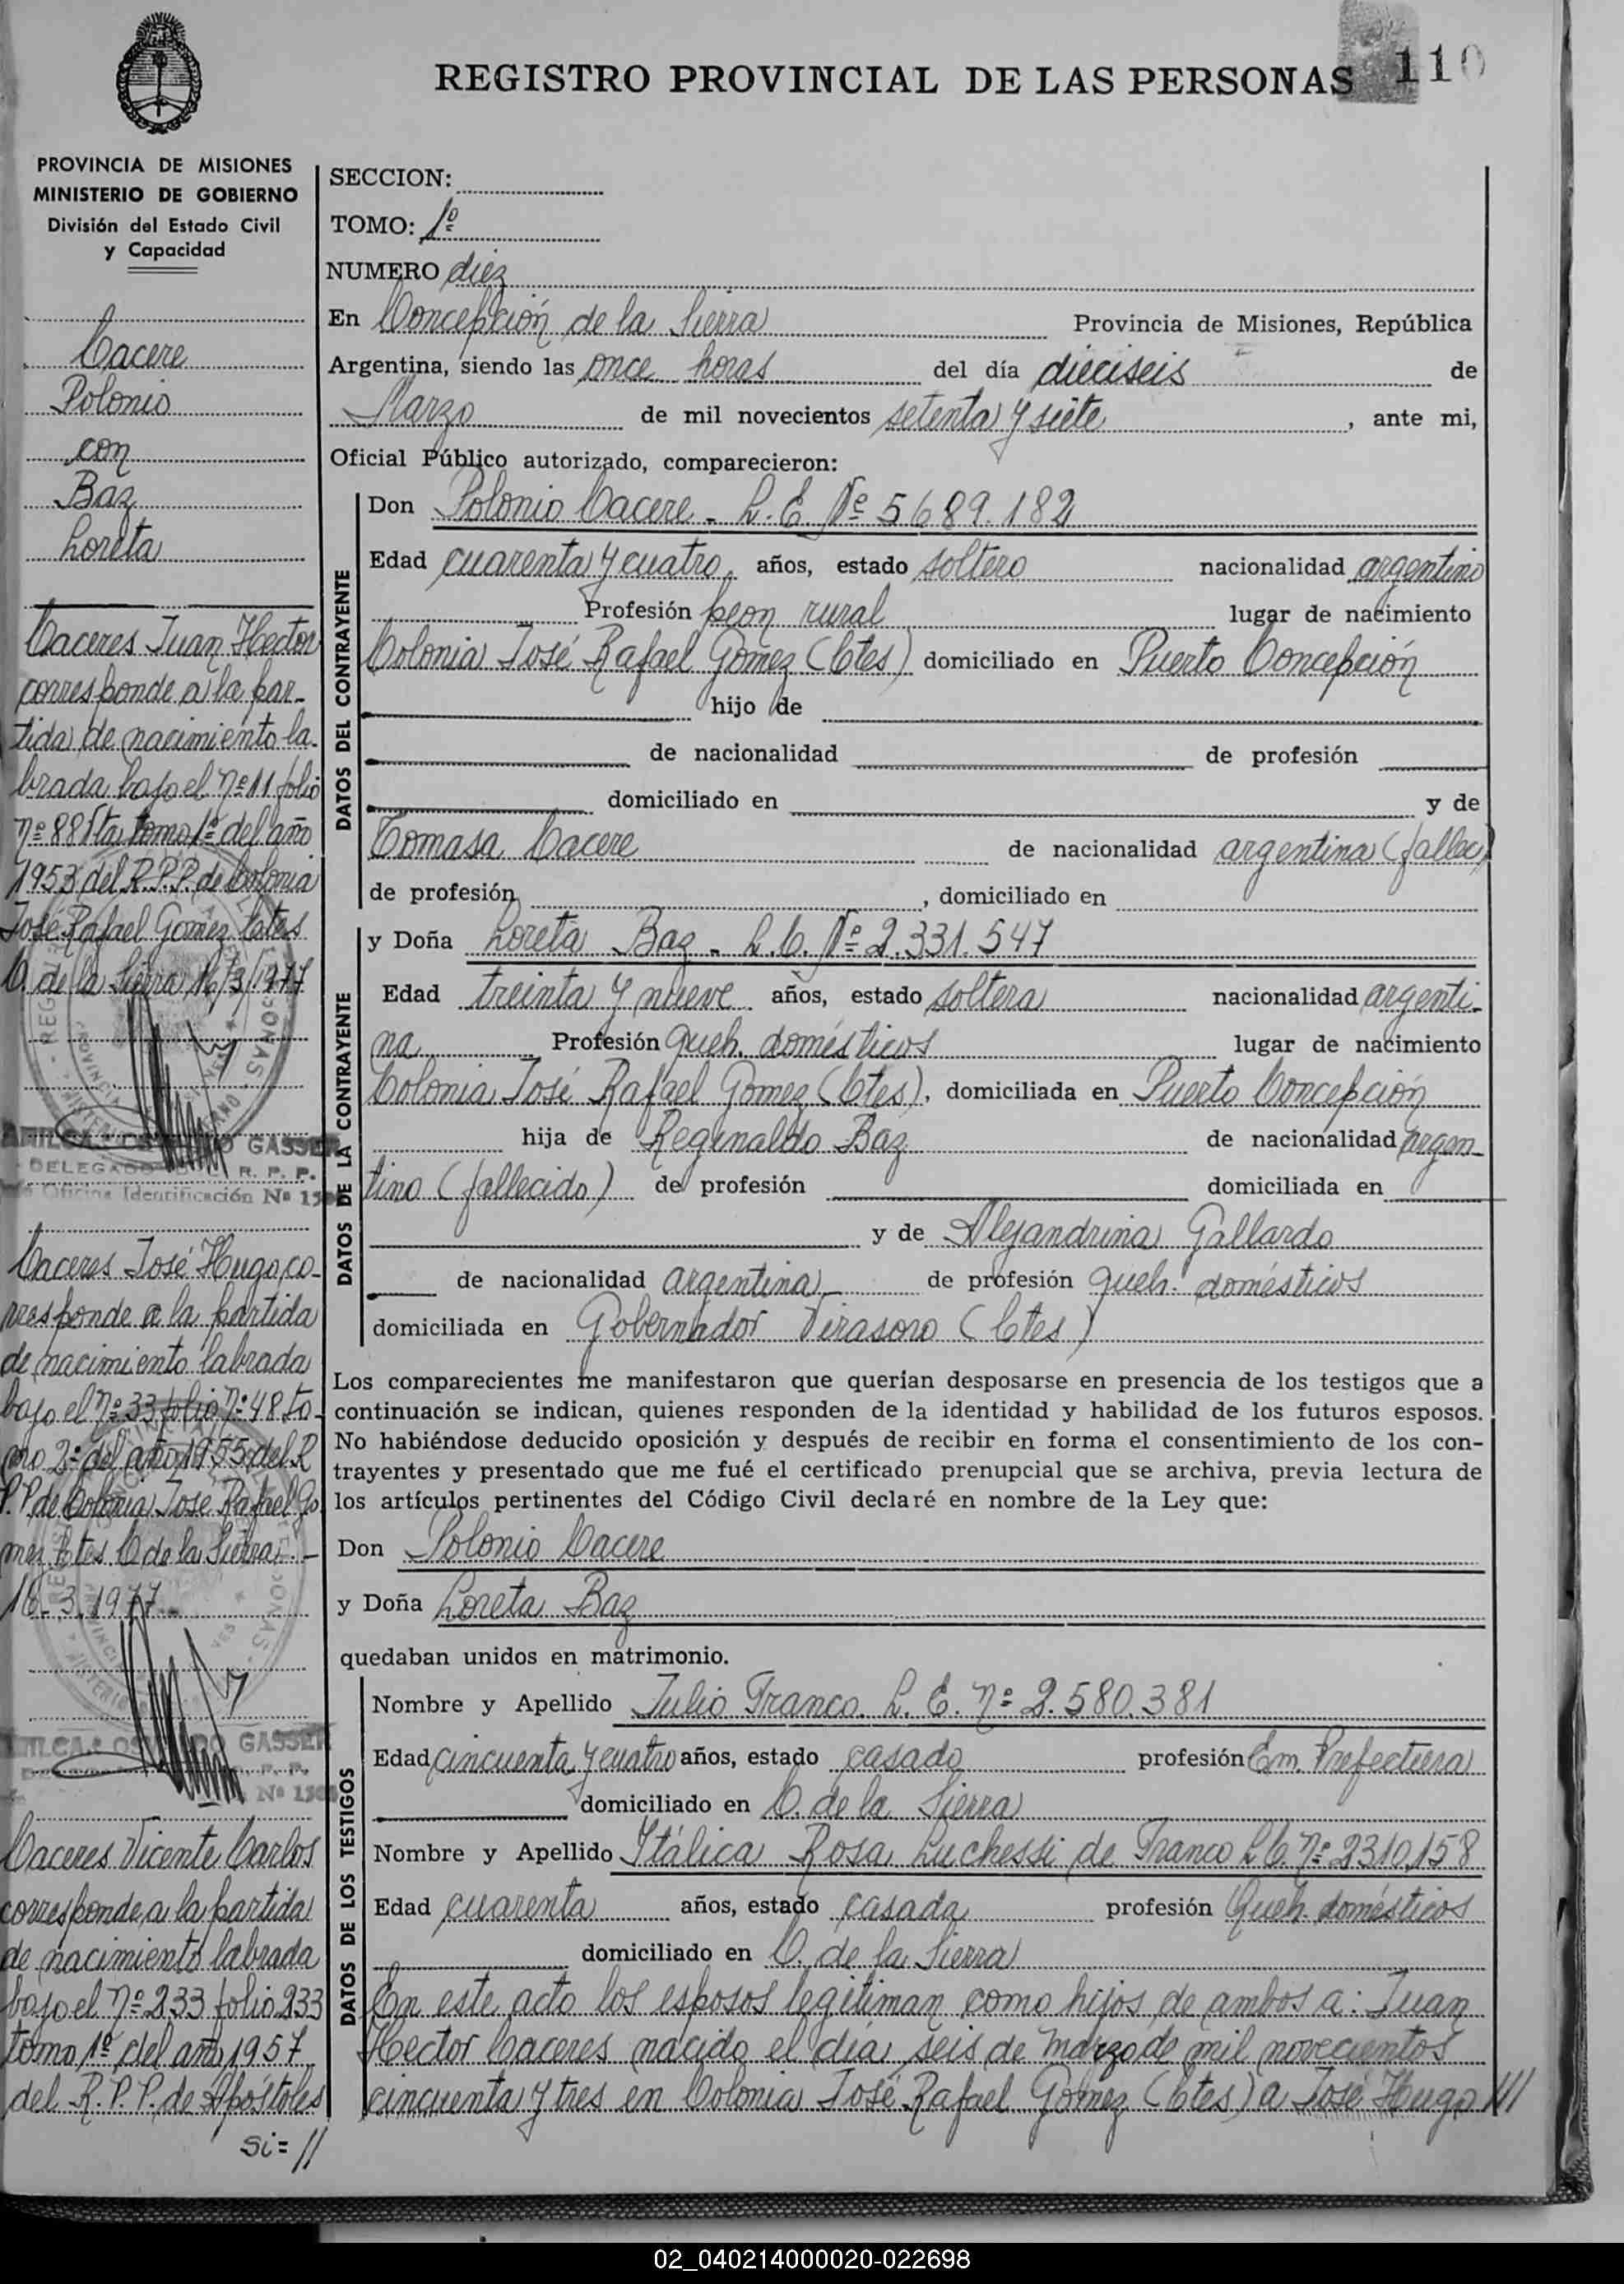 REGISTRO PROVINCIAL DE LAS PERSONAS
110
PROVINCIA DE MISIONES
MINISTERIO DE GOBIERNO
División del Estado Civil
y Capacidad
Cacere
Polonio
con
Baz
Loreta
Caceres Juan Hector
corresponde a la par-
tida de nacimiento la-
brada bajo el Nº 11 folio
Nº 88 Vta tomo 1º del año
1953 del R.P.P. de Colonia
José Rafael Gomez Ctes
C. de la Sierra 16/3/1977
GASSER
DELEGADO R. P. P.
Oficina Identificación Nº
Caceres José Hugo co-
rresponde a la partida
de nacimiento labrada
bajo el Nº 33 folio Nº 48 to-
mo 2º del año 1955 del R
P.P. de Colonia Jose Rafael Go
mez Ctes C de la Sierra.-
16-3-1977
GASSER
Caceres Vicente Carlos
corresponde a la partida
de nacimiento labrada
bajo el Nº 233 folio 233
tomo 1º del año 1957
del R.P.P. de Apóstoles
Si= //
SECCION:
TOMO: 1º
NUMERO diez
En Concepción de la Sierra Provincia de Misiones, República
Argentina, siendo las once horas del día dieciseis de
Marzo de mil novecientos setenta y siete, ante mi,
Oficial Público autorizado, comparecieron:
DATOS DEL CONTRAYENTE
Don Polonio Cacere - L.E. Nº 5689.182
Edad cuarenta y cuatro años, estado soltero nacionalidad argentino
Profesión peon rural lugar de nacimiento
Colonia José Rafael Gomez (Ctes) domiciliado en Puerto Concepción
hijo de
de nacionalidad de profesión
domiciliado en y de
Tomasa Cacere de nacionalidad argentina (fallec)
de profesión, domiciliado en
DATOS DE LA CONTRAYENTE
y Doña Loreta Baz - L.C. Nº 2.331.547
Edad treinta y nueve años, estado soltera nacionalidad argenti-
na Profesión queh. domésticos lugar de nacimiento
Colonia José Rafael Gomez (Ctes), domiciliada en Puerto Concepción
hija de Reginaldo Baz de nacionalidad argen-
tino (fallecido) de profesión domiciliada en
y de Alejandrina Gallardo
de nacionalidad argentina de profesión queh. domésticos
domiciliada en Gobernador Virasoro (Ctes)
Los comparecientes me manifestaron que querían desposarse en presencia de los testigos que a
continuación se indican, quienes responden de la identidad y habilidad de los futuros esposos.
No habiéndose deducido oposición y después de recibir en forma el consentimiento de los con-
trayentes y presentado que me fué el certificado prenupcial que se archiva, previa lectura de
los artículos pertinentes del Código Civil declaré en nombre de la Ley que:
Don Polonio Cacere
y Doña Loreta Baz
quedaban unidos en matrimonio.
DATOS DE LOS TESTIGOS
Nombre y Apellido Julio Franco. L.E. Nº 2.580.381
Edad cincuenta y cuatro años, estado casado profesión Em. Prefectura
domiciliado en C. de la Sierra
Nombre y Apellido Itálica Rosa Luchessi de Franco L.C. Nº 2310.158
Edad cuarenta años, estado casada profesión Queh. domésticos
domiciliado en C. de la Sierra
En este acto los esposos legitiman como hijos de ambos a: Juan
Hector Caceres nacido el día seis de marzo de mil novecientos
cincuenta y tres en Colonia José Rafael Gómez (Ctes) a José Hugo ///
02_040214000020-022698